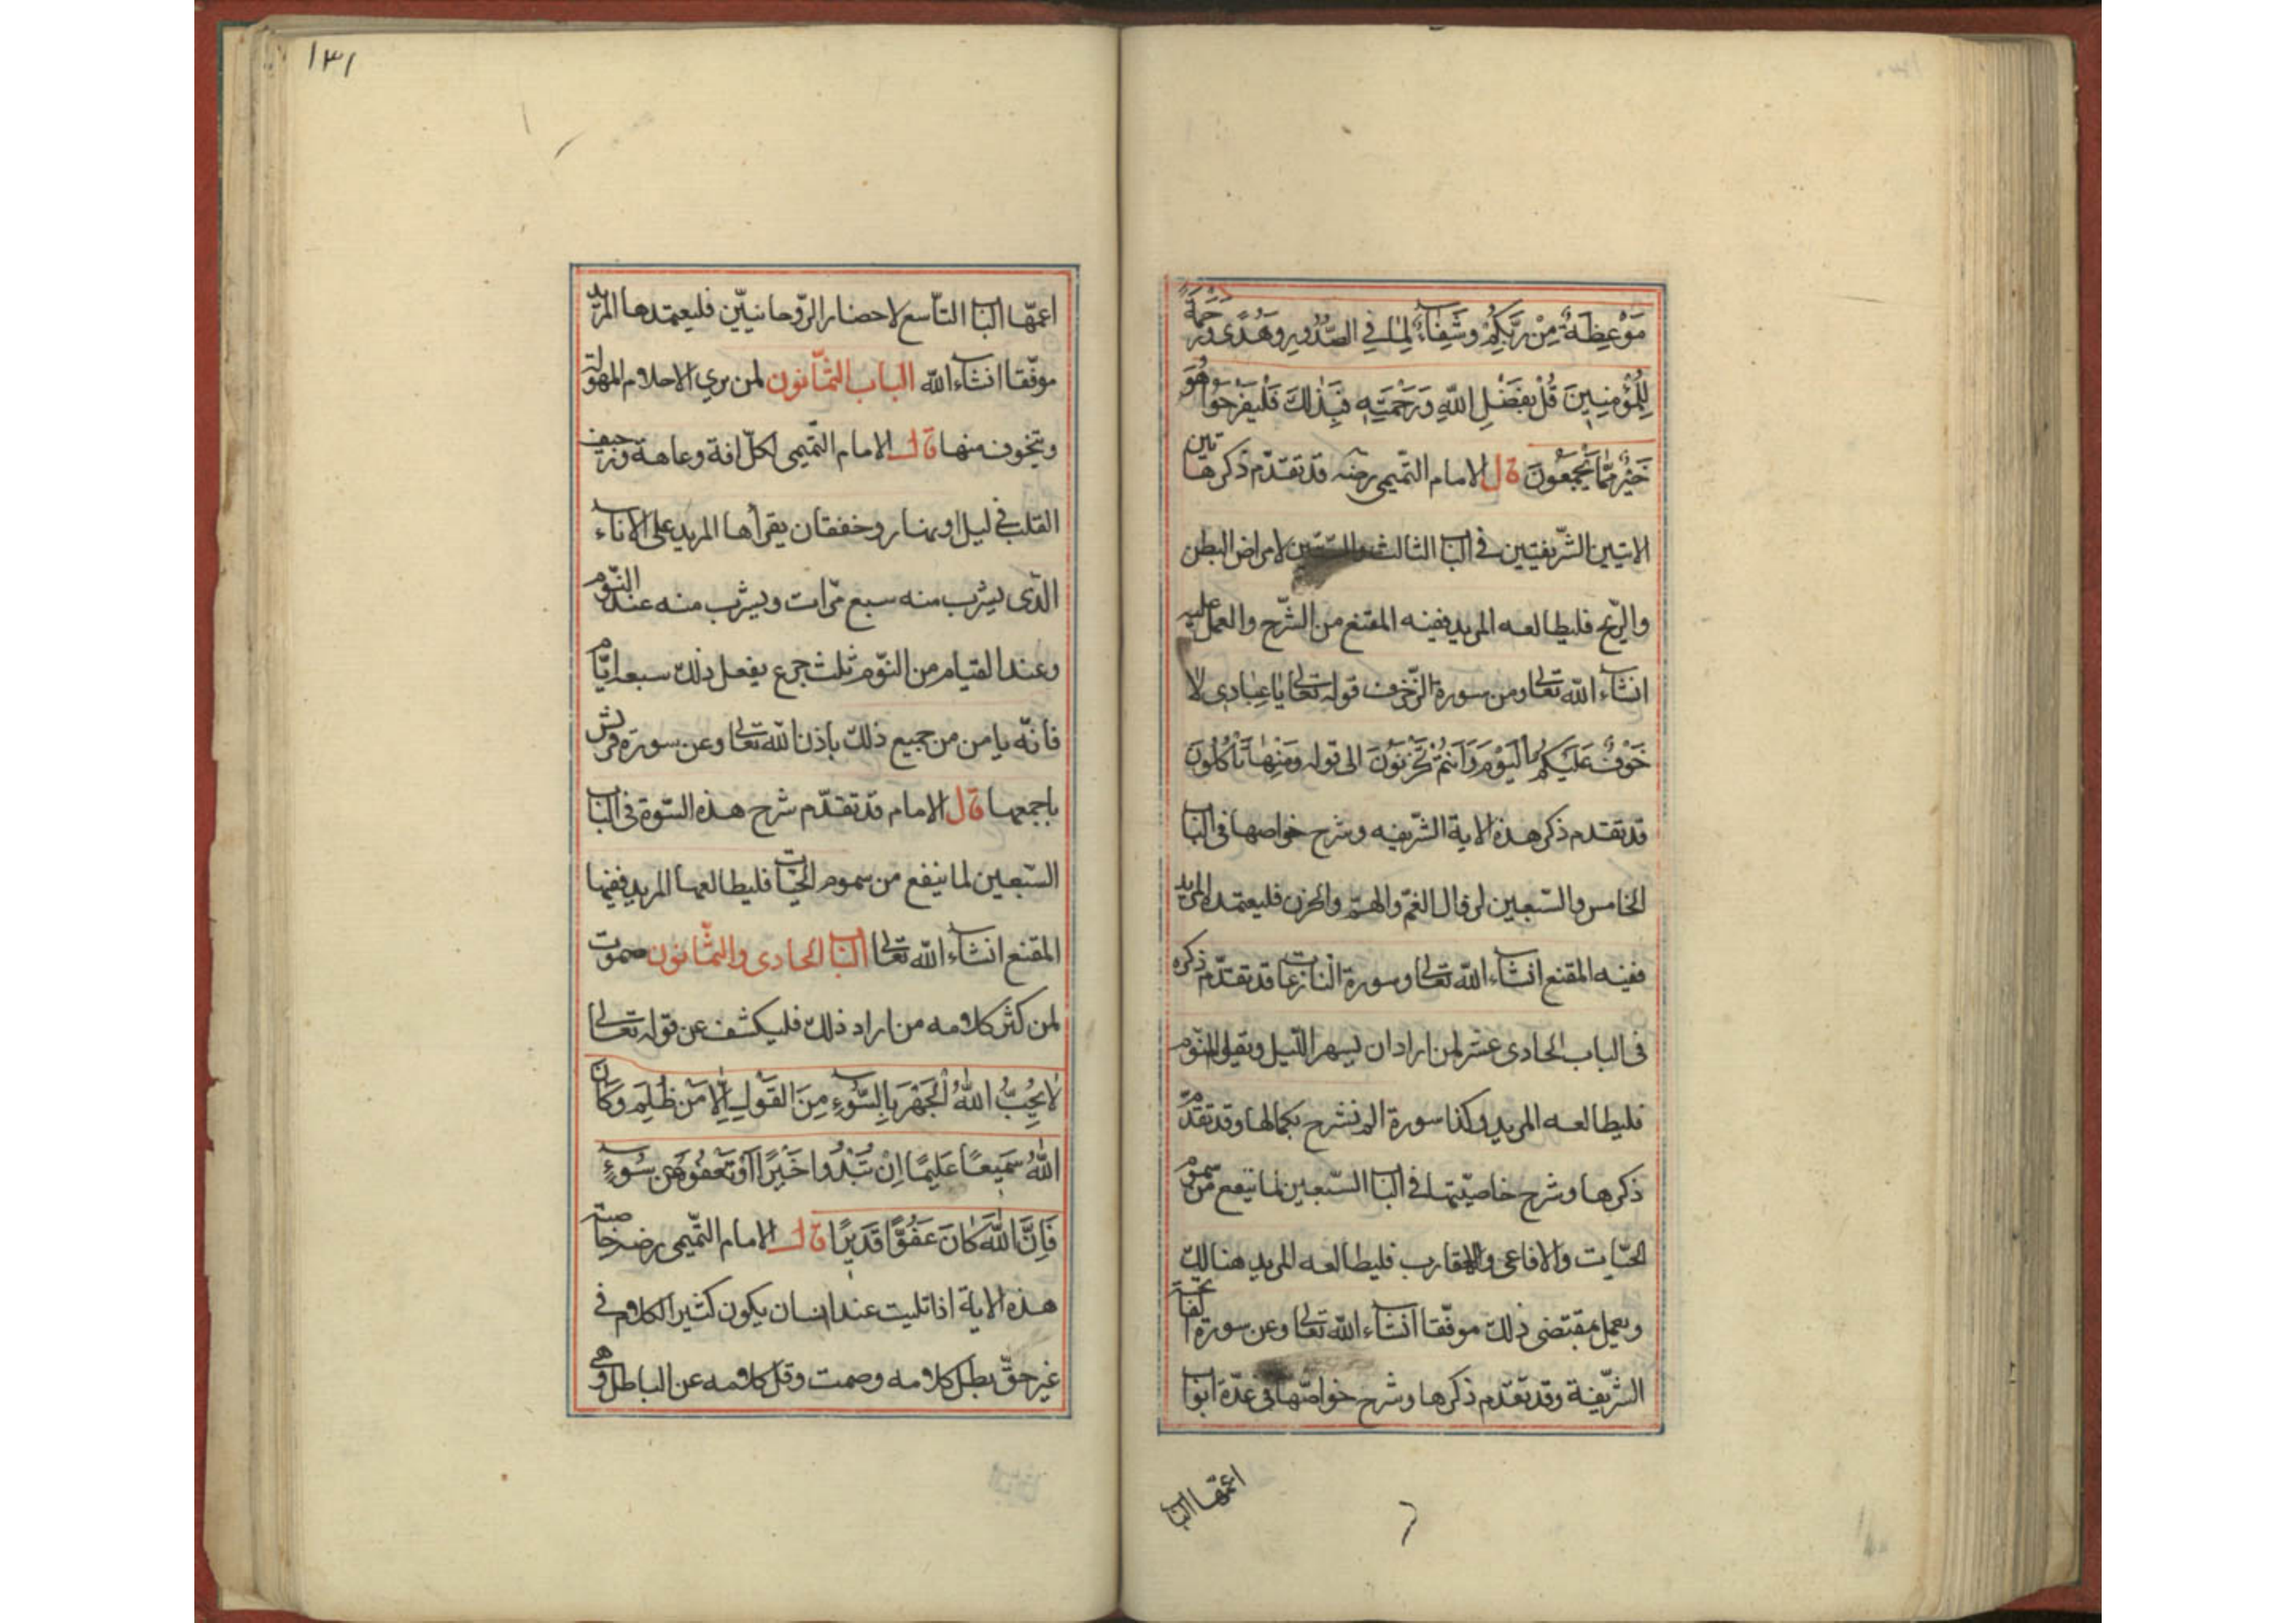 مَوْعِظَةٌ مِنْ رَبِّكُمْ وَشِفَاءٌ لِمَا فِي الصُّدُورِ وَهُدًى وَرَحْمَةٌ
لِلْمُؤْمِنِينَ قُلْ بِفَضْلِ اللَّهِ وَرَحْمَتِهِ فَبِذَلِكَ فَلْيَفْرَحُوا هُوَ
خَيْرٌ مِمَّا يَجْمَعُونَ قال الامام التميمى رحمه قد تقدّم ذكر هاتين
الايتين الشريفيتين فى الباب الثالث والستين لامراض البطن
والريح فليطالعه المريد ففيه المقنع من الشرح والعمل عليه
انشاء الله تعالى ومن سورة الزخرف قوله تعالى يَا عِبَادِى لَا
خَوْفٌ عَلَيْكُمُ الْيَوْمَ وَلَا أَنْتُمْ تَحْزَنُونَ الى قوله وَمِنْهَا تَأْكُلُونَ
قد تقدم ذكر هذه الاية الشريفه وشرح خواصها فى الباب
الخامس والسبعين لزوال الغمّ والهمّ والحزن فليعتمده المريد
ففيه المقنع انشاء الله تعالى وسورة النازعات قد تقدّم ذكره
فى الباب الحادى عشر لمن اراد ان يسهر الليل ويقل النوم
فليطالعه المريد وكذا سورة الم نشرح بكمالها وقد تقدّمت
ذكرها وشرح خاصيتها فى الباب السبعين لما ينفع من سموم
الحيّات والافاعى والعقارب فليطالعه المريد هنالك
ويعمل بمقتضى ذلك موفّقا انشاء الله تعالى وعن سورة الفاتحة
الشريفة وقد تقدّم ذكرها وشرح خواصّها فى عدّة ابواب
اعمّها الباب
١٣١
اعمّها الباب التاسع لاحضار الروحانيّين فليعتمدها المريد
موفّقا انشاء الله الباب الثمانون لمن يرى الاحلام المهولة
ويتخوف منها قال الامام التميمى لكلّ افة وعاهة ورجيف
القلب فى ليل او نهار وخفقان يقرأها المريد على الاناء
الذى يشرب منه سبع مرّات ويشرب منه عند النوم
وعند القيام من النوم ثلث جرع يفعل ذلك سبعة ايّام
فانّه يامن من جميع ذلك باذن الله تعالى وعن سورة قريش
باجمعها قال الامام قد تقدّم شرح هذه السّورة فى الباب
السبعين لما ينفع من سموم الحيات فليطالعها المريد ففيها
المقنع انشاء الله تعالى الباب الحادى والثمانون صموت
لمن كثر كلامه من اراد ذلك فليكشف عن قوله تعالى
لَا يُحِبُّ اللَّهُ الْجَهْرَ بِالسُّوءِ مِنَ الْقَوْلِ إِلَّا مَنْ ظُلِمَ وَكَانَ
اللَّهُ سَمِيعًا عَلِيمًا إِنْ تُبْدُوا خَيْرًا أَوْ تَعْفُوا عَنْ سُوءٍ
فَإِنَّ اللَّهَ كَانَ عَفُوًّا قَدِيرًا قال الامام التميمى رضه خاصية
هذه الاية اذا تليت عند انسان يكون كثير الكلام فى
غير حقّ بطل كلامه وصمت وقل كلامه عن الباطل وهى